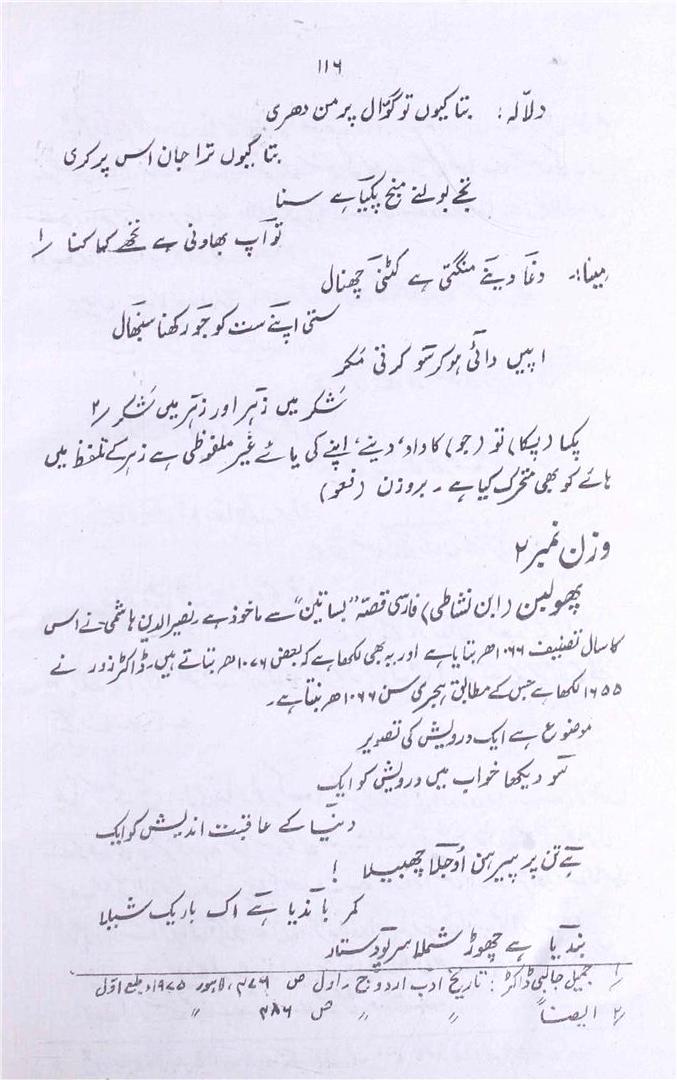 ۱۱۶
دلاّلہ: بتا کیوں تو گوّال پر من دھری
بتا کیوں ترا جان اس پر کری
تجے بولنے منج پکیا ہے سنا
تو آپ بھاونی ہے تجھے کہا کنا ؍۱
مینا:۔ دغا دینے منگتی ہے کٹنی چھنال
ستی اپنے ست کو جو رکھنا سنبھال
اپیں دائی ہو کر سو کرتی مکر
شکر میں زہر اور زہر میں شکر ؍۲
پکیا (پکا) تو (جو) کا داد، دینے، اپنے کی یائے غیر ملفوظی ہے زہر کے تلفظ میں
ہائے کو بھی متحرک کیا ہے ۔ بروزن (فعو)
وزن نمبر ۲
پھولبن (ابن نشاطی) فارسی قصہ "بساتین" سے ماخوذ ہے۔ نصیر الدین ہاشمی نے اس
کا سال تصنیف ۱۰۶۶ھ بتایا ہے اور یہ بھی لکھا ہے کہ بعض ۱۰۷۶ھ بتاتے ہیں۔ ڈاکٹر زور نے
۱۶۵۵ لکھا ہے جس کے مطابق ہجری سن ۱۰۶۶ھ بنتا ہے۔
موضوع ہے ایک درویش کی تصویر
سو دیکھا خواب میں درویش کو ایک
دنیا کے عاقبت اندیش کو ایک
ہے تن پر پیرہن اُوجلا چھبیلا !
کمر باندیا ہے اک باریک شیلا
بندیا ہے چھوڑ شملا سر پو دستار
؍۱ جمیل جالبی ڈاکٹر: تاریخ ادب اردو ج۔ اول ص ۴۷۶، لاہور ۱۹۷۵ء طبع اوّل
؍۲ ایضاً " " ص ۴۸۶ "